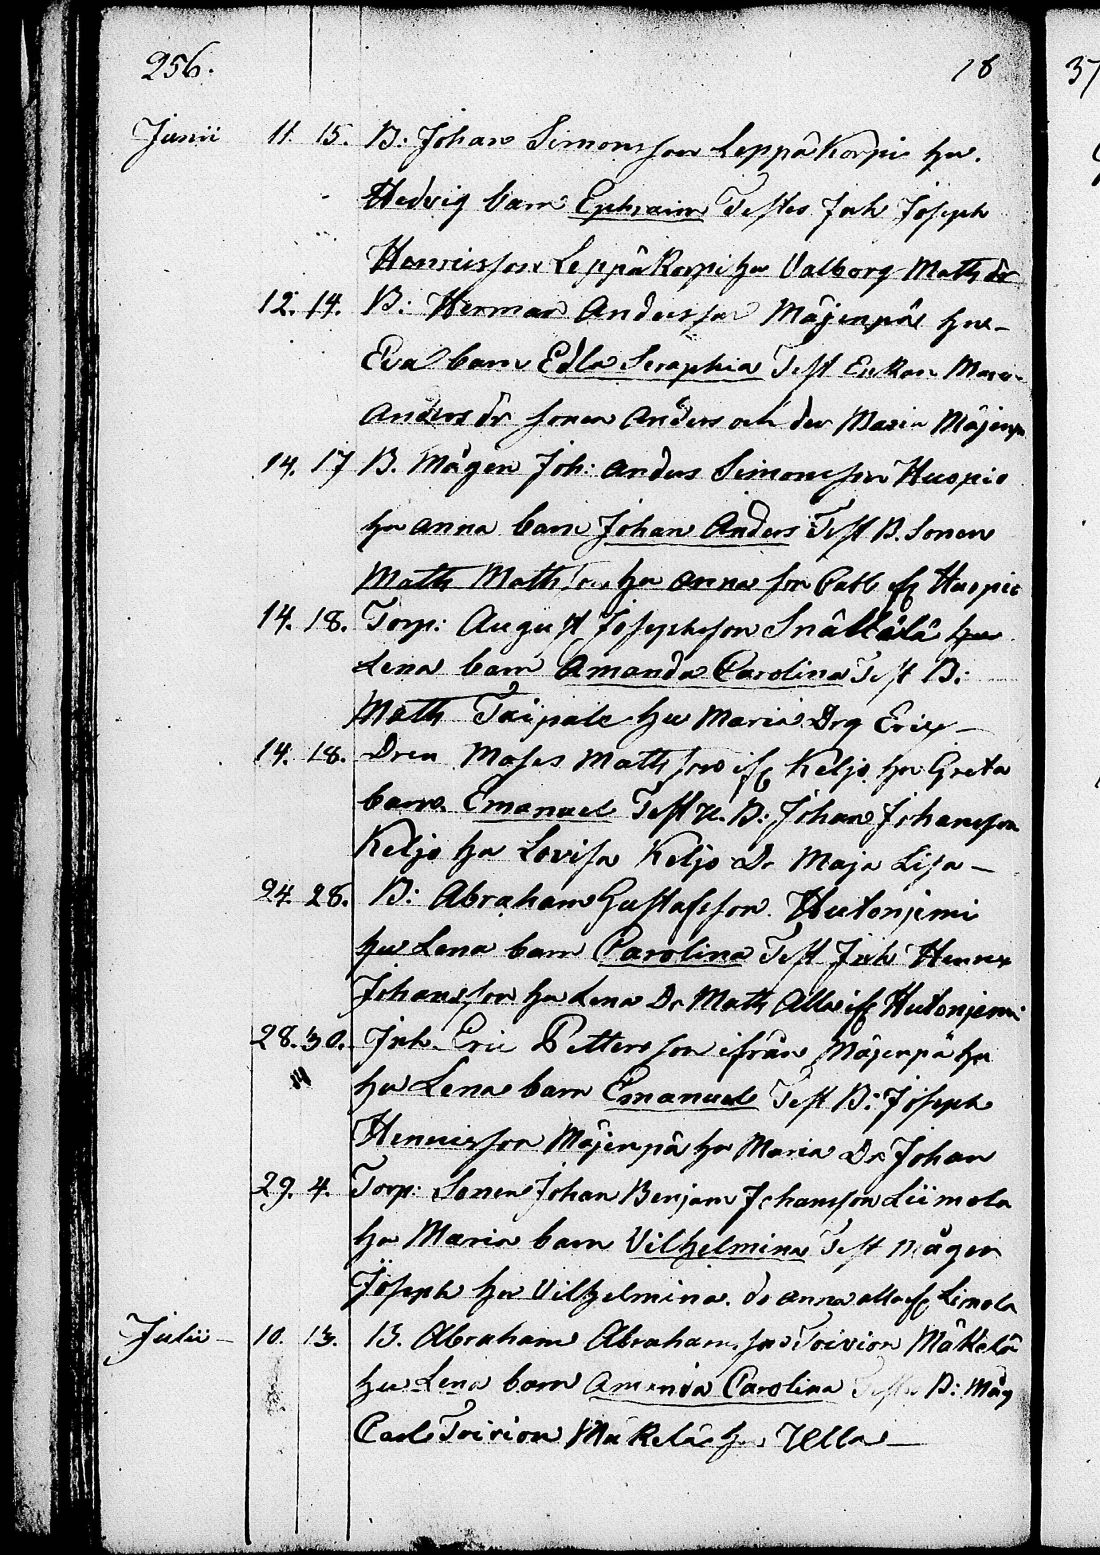 256.
18
37
Junii 11. 15. B: Johan Simonsson Leppäkorpi hu.
Hedvig barn Ephraim Testes Inh Joseph
Henricsson Leppäkorpi hu Valborg Maths dr
12. 14. B: Herman Andersson Mäjenpä hu
Eva barn Edla Seraphia Test Enkan Maria
Anders dr sonen Anders och der Maria Mäjenp
14. 17 B. Mågen Joh: Anders Simonsson Huspio
hu Anna barn Johan Anders Test B. Sonen
Maths Mathsson hu Anna if Huspio
14. 18. Torp: August Josephsson Snällälä hu
Lena barn Amanda Carolina Test B:
Maths Taipale hu Maria Drg Eric
14. 18. Dren Moses Mathsson if Keljo hu Greta
barn Emanuel Test B: Johan Johansson
Keljo hu Lovisa Keljo Dr Maja Lisa
24. 28. B: Abraham Gustafsson Hutonjemi
hu Lena barn Carolina Test Inh Henric
Johansson hu Lena Dr Maths Alla if Hutonjemi
28. 30. Inh. Eric Pettersson ifrån Mäjenpä hu
hu Lena barn Emanuel Test B: Joseph
Henricsson Mäjenpä hu Maria Dr Johan
29. 4. Torp: Sonen Johan Benjam Johansson Liimola
hu Maria barn Vilhelmina Test Mågen
Joseph hu Vilhelmina. do Anna alla if Limola
Julii 10. 13. B. Abraham Abrahamsson Toivion Mäkelä
hu Lena barn Amanda Carolina Testes B: Måg
Carl Toivion Mäkelä hu Ulla